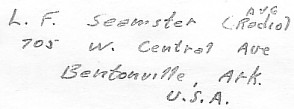 L. F. Seamster (Radio)
705 W. Central Ave
Bentonville, Ark.
U.S.A.